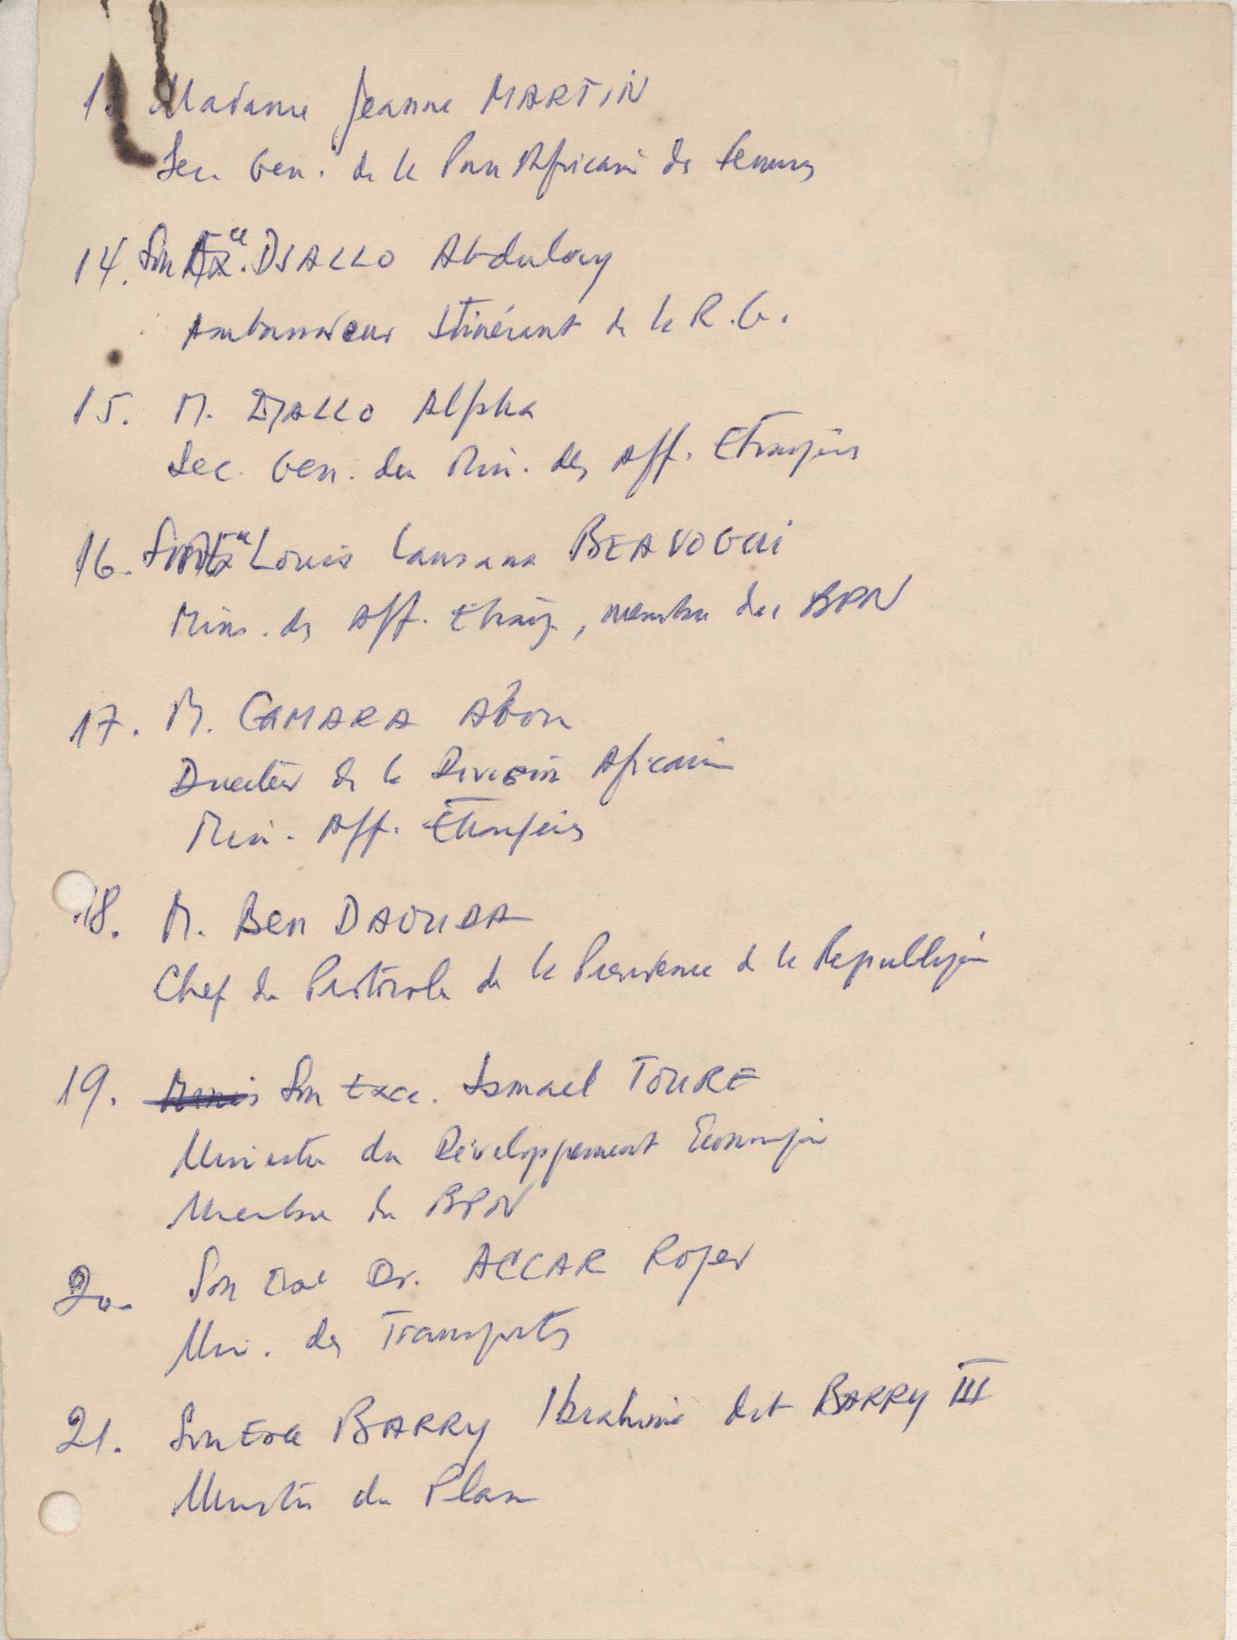 1. Madame Jeanne MARTIN
Sec. Gen. de la Pan Africaine des femmes
14. Son Exce. DIALLO Abdulay
Ambassadeur Itinérant de la R.G.
15. M. DIALLO Alpha
Sec. Gen. du Min. des Aff. Etrangères
16. Son Exce Louis Lansana BEAVOGUI
Mins. des Aff. Etrang., membre du BPN
17. M. CAMARA Abou
Directeur de la Division Africaine
Min. Aff. Etrangères
18. M. Ben DAOUDA
Chef du Protocole de la Presidence de la Republique
19. Son Exce. Ismael TOURE
Ministre du Développement Economique
Membre du BPN
20. Son Exce Dr. ACCAR Roger
Min. des Transports
21. Son Exce BARRY Ibrahima dit BARRY III
Ministre du Plan